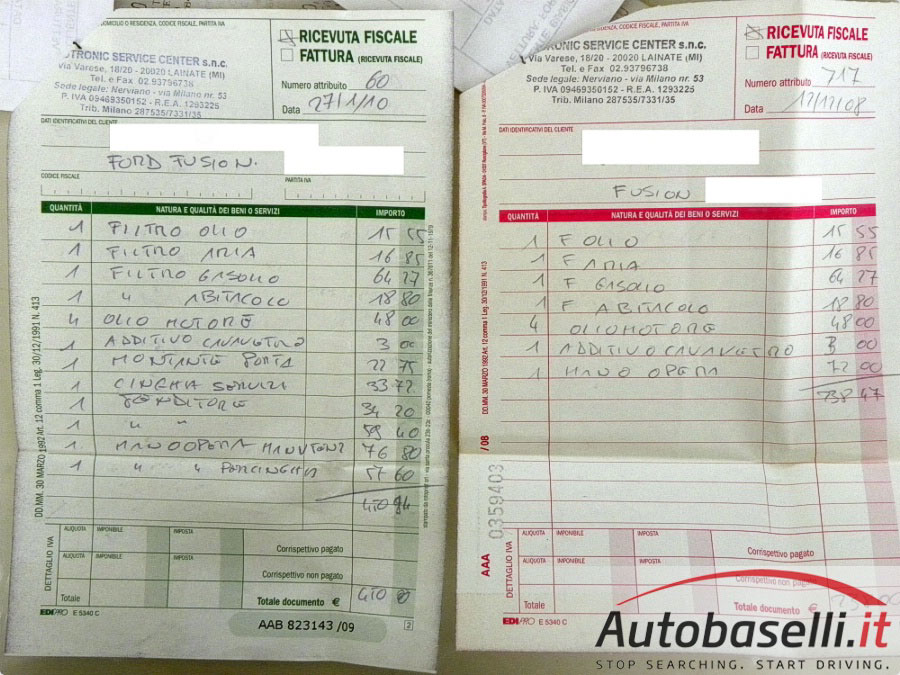 DOMICILIO O RESIDENZA, CODICE FISCALE, PARTITA IVA
TRONIC SERVICE CENTER s.n.c.
Via Varese, 18/20 - 20020 LAINATE (MI)
Tel. e Fax 02.93796738
Sede legale: Nerviano - via Milano nr. 53
P. IVA 09469350152 - R.E.A. 1293225
Trib. Milano 287535/7331/35
RICEVUTA FISCALE
FATTURA (RICEVUTA FISCALE)
Numero attribuito 60
Data 27/1/10
DATI IDENTIFICATIVI DEL CLIENTE
FORD FUSION.
CODICE FISCALE PARTITA IVA
QUANTITÀ NATURA E QUALITÀ DEI BENI O SERVIZI IMPORTO
1 FILTRO OLIO 15 55
1 FILTRO ARIA 16 85
1 FILTRO GASOLIO 64 27
1 " ABITACOLO 18 80
4 OLIO MOTORE 48 00
1 ADDITIVO LAVAVETRO 3 00
1 MONTANTE PORTA 22 75
1 CINGHIA SERVIZI 33 72
1 TENDITORE 34 20
1 " " 59 40
1 MANODOPERA MANUTENZ 76 80
1 " " PER CINGHIA 57 60
410 94
DD.MM. 30 MARZO 1992 Art. 12 comma 1 Leg. 30/12/1991 N. 413
DETTAGLIO IVA
ALIQUOTA IMPONIBILE IMPOSTA
Corrispettivo pagato
ALIQUOTA IMPONIBILE IMPOSTA
Corrispettivo non pagato
Totale
Totale documento € 410
EDIPRO E 5340 C
AAB 823143 /09
2
RESIDENZA, CODICE FISCALE, PARTITA IVA
TRONIC SERVICE CENTER s.n.c.
Via Varese, 18/20 - 20020 LAINATE (MI)
Tel. e Fax 02.93796738
Sede legale: Nerviano - via Milano nr. 53
P. IVA 09469350152 - R.E.A. 1293225
Trib. Milano 287535/7331/35
RICEVUTA FISCALE
FATTURA (RICEVUTA FISCALE)
Numero attribuito 717
Data 12/12/08
DATI IDENTIFICATIVI DEL CLIENTE
FUSION
QUANTITÀ NATURA E QUALITÀ DEI BENI O SERVIZI IMPORTO
1 F OLIO 15 55
1 F ARIA 16 85
1 F GASOLIO 64 27
1 F ABITACOLO 18 80
4 OLIO MOTORE 48 00
1 ADDITIVO LAVAVETRO 3 00
1 MANO OPERA 72 00
238 47
DD.MM. 30 MARZO 1992 Art. 12 comma 1 Leg. 30/12/1991 N. 413
AAA 0359403 /08
DETTAGLIO IVA
ALIQUOTA IMPONIBILE IMPOSTA
Corrispettivo pagato
Totale
Totale documento €
EDIPRO E 5340 C
Autobaselli.it
STOP SEARCHING. START DRIVING.